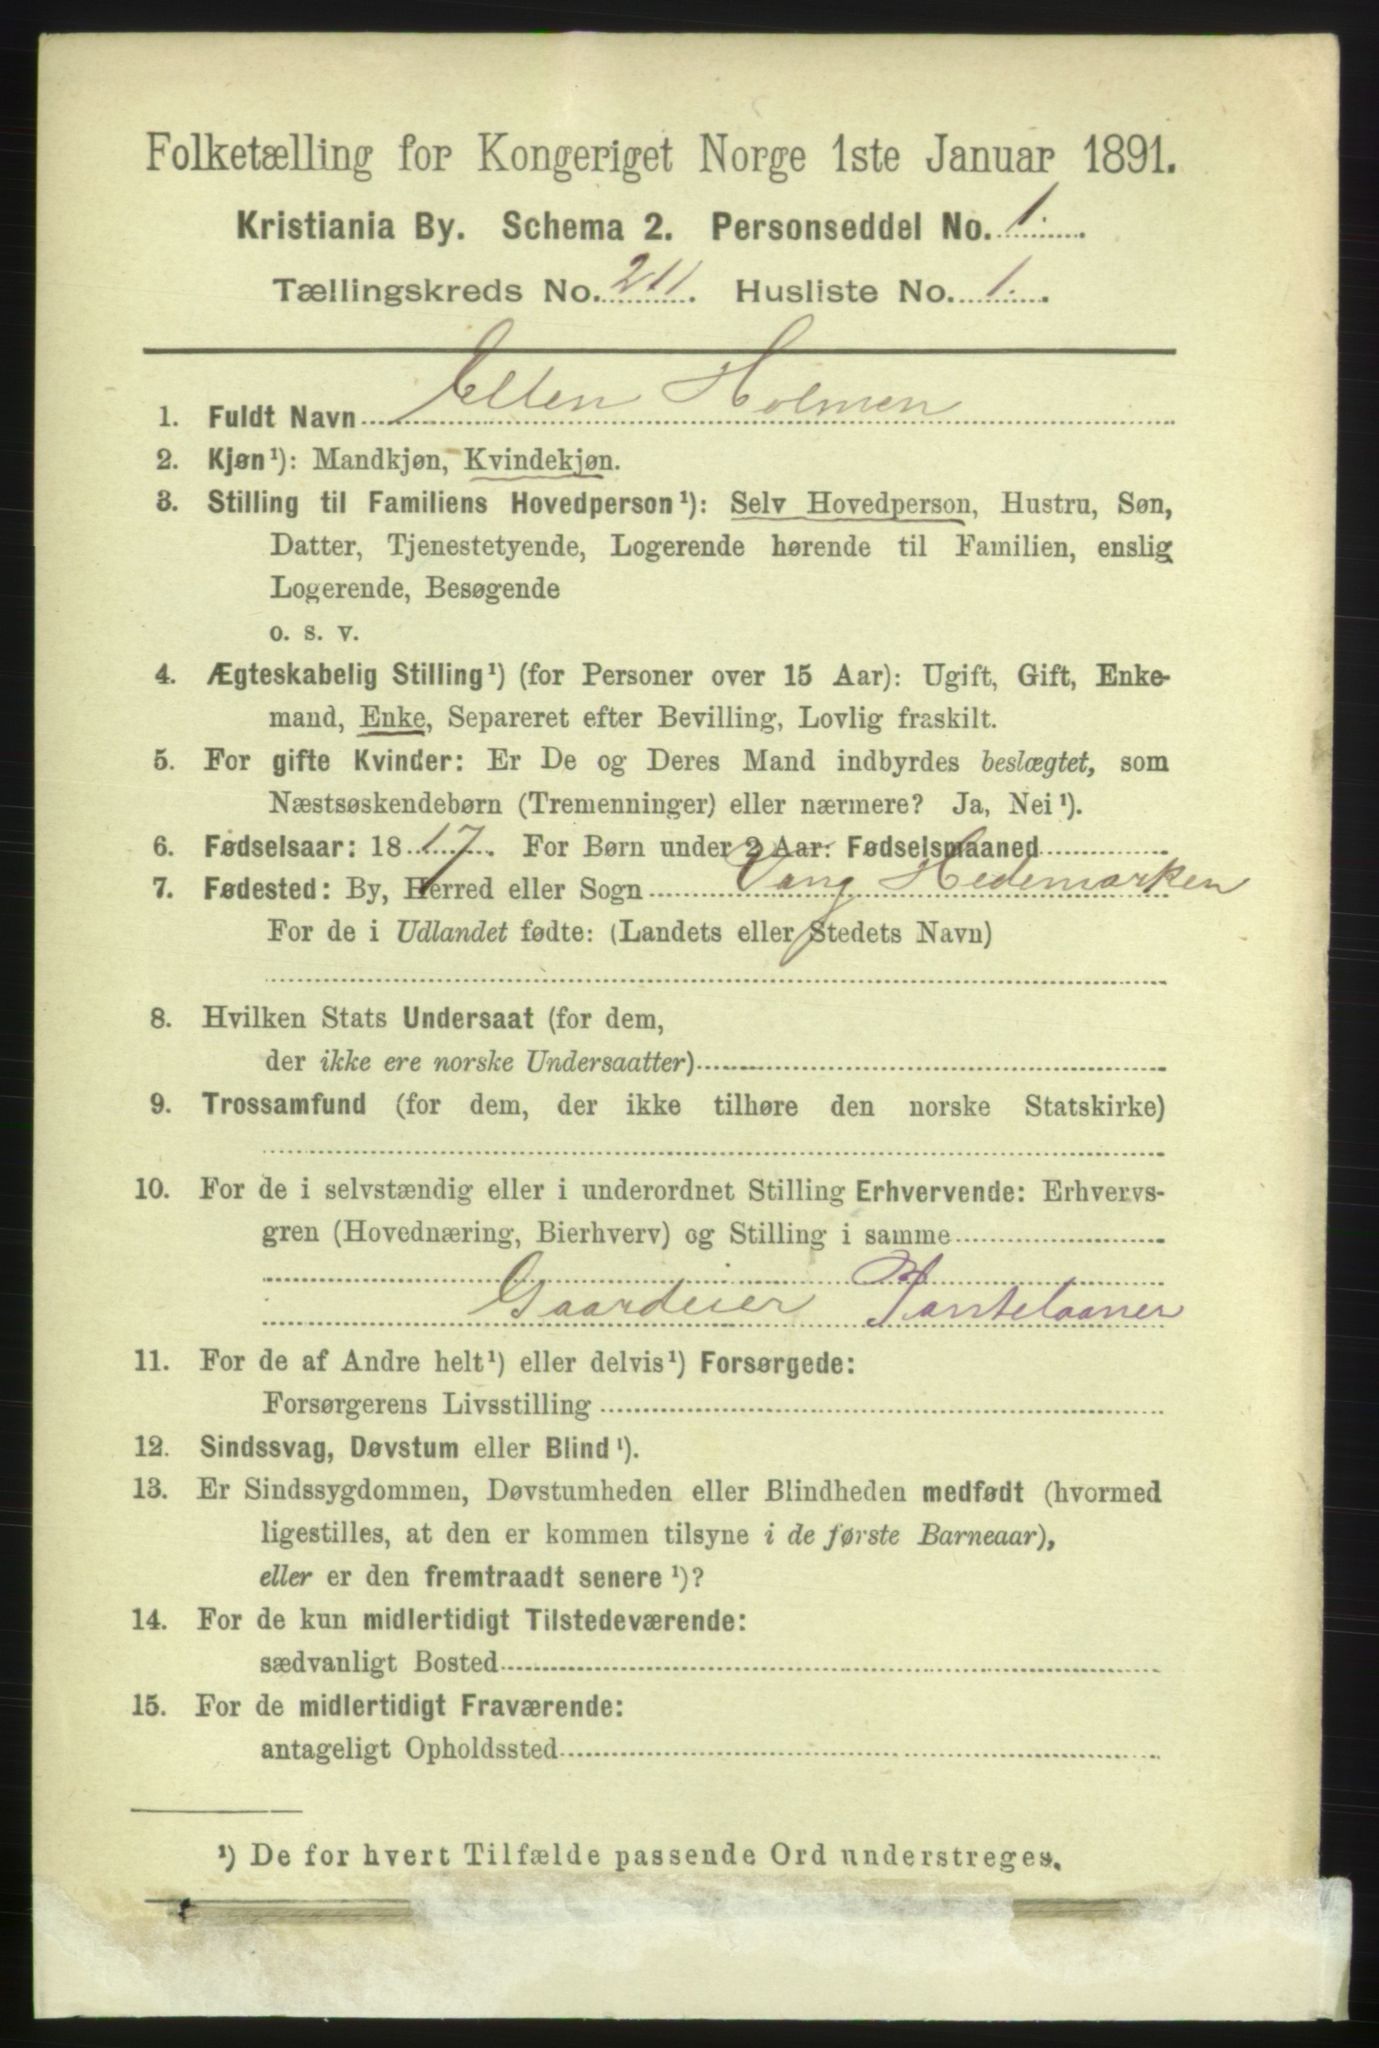 Folketælling for Kongeriget Norge 1ste Januar 1891.
Kristiania By. Schema 2. Personseddel No. 1.
Tællingskreds No. 211. Husliste No. 1.
1. Fuldt Navn Ellen Holmen
2. Kjøn¹): Mandkjøn, Kvindekjøn.
3. Stilling til Familiens Hovedperson¹): Selv Hovedperson, Hustru, Søn,
Datter, Tjenestetyende, Logerende hørende til Familien, enslig
Logerende, Besøgende
o. s. v.
4. Ægteskabelig Stilling¹) (for Personer over 15 Aar): Ugift, Gift, Enke-
mand, Enke, Separeret efter Bevilling, Lovlig fraskilt.
5. For gifte Kvinder: Er De og Deres Mand indbyrdes beslægtet, som
Næstsøskendebørn (Tremenninger) eller nærmere? Ja, Nei¹).
6. Fødselsaar: 1817. For Børn under 2 Aar: Fødselsmaaned
7. Fødested: By, Herred eller Sogn Vang Hedemarken
For de i Udlandet fødte: (Landets eller Stedets Navn)
8. Hvilken Stats Undersaat (for dem,
der ikke ere norske Undersaatter)
9. Trossamfund (for dem, der ikke tilhøre den norske Statskirke)
10. For de i selvstændig eller i underordnet Stilling Erhvervende: Erhvervs-
gren (Hovednæring, Bierhverv) og Stilling i samme
Gaardeier Pantelaaner
11. For de af Andre helt¹) eller delvis¹) Forsørgede:
Forsørgerens Livsstilling
12. Sindssvag, Døvstum eller Blind¹).
13. Er Sindssygdommen, Døvstumheden eller Blindheden medfødt (hvormed
ligestilles, at den er kommen tilsyne i de første Barneaar),
eller er den fremtraadt senere¹)?
14. For de kun midlertidigt Tilstedeværende:
sædvanligt Bosted
15. For de midlertidigt Fraværende:
antageligt Opholdssted
¹) De for hvert Tilfælde passende Ord understreges.